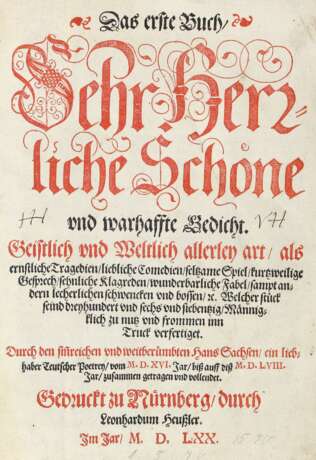 Das erste Buch/
Sehr Herr-
liche Schöne
vnd warhaffte Gedicht.
Geistlich vnd Weltlich allerley art/ als
ernstliche Tragedien/ liebliche Comedien/ seltzame Spiel/ kurtzweilige
Gesprech/ sehnliche Klagreden/ wunderbarliche Fabel/ sampt an-
dern lecherlichen schwencken vnd bossen/ ꝛc. Welcher stück
seind dreyhundert vnd sechs vnd siebentzig/ Männig-
klich zu nutz vnd frommen inn
Truck verfertiget.
Durch den sinreichen vnd weitberümbten Hans Sachsen/ ein lieb-
haber Teutscher Poetrey/ vom M. D. XVI. Jar/ biß auff diß M. D. LVIII.
Jar/ zusammen getragen vnd vollendet.
Gedruckt zu Nürnberg/ durch
Leonhardum Heußler.
Im Jar/ M. D. LXX.